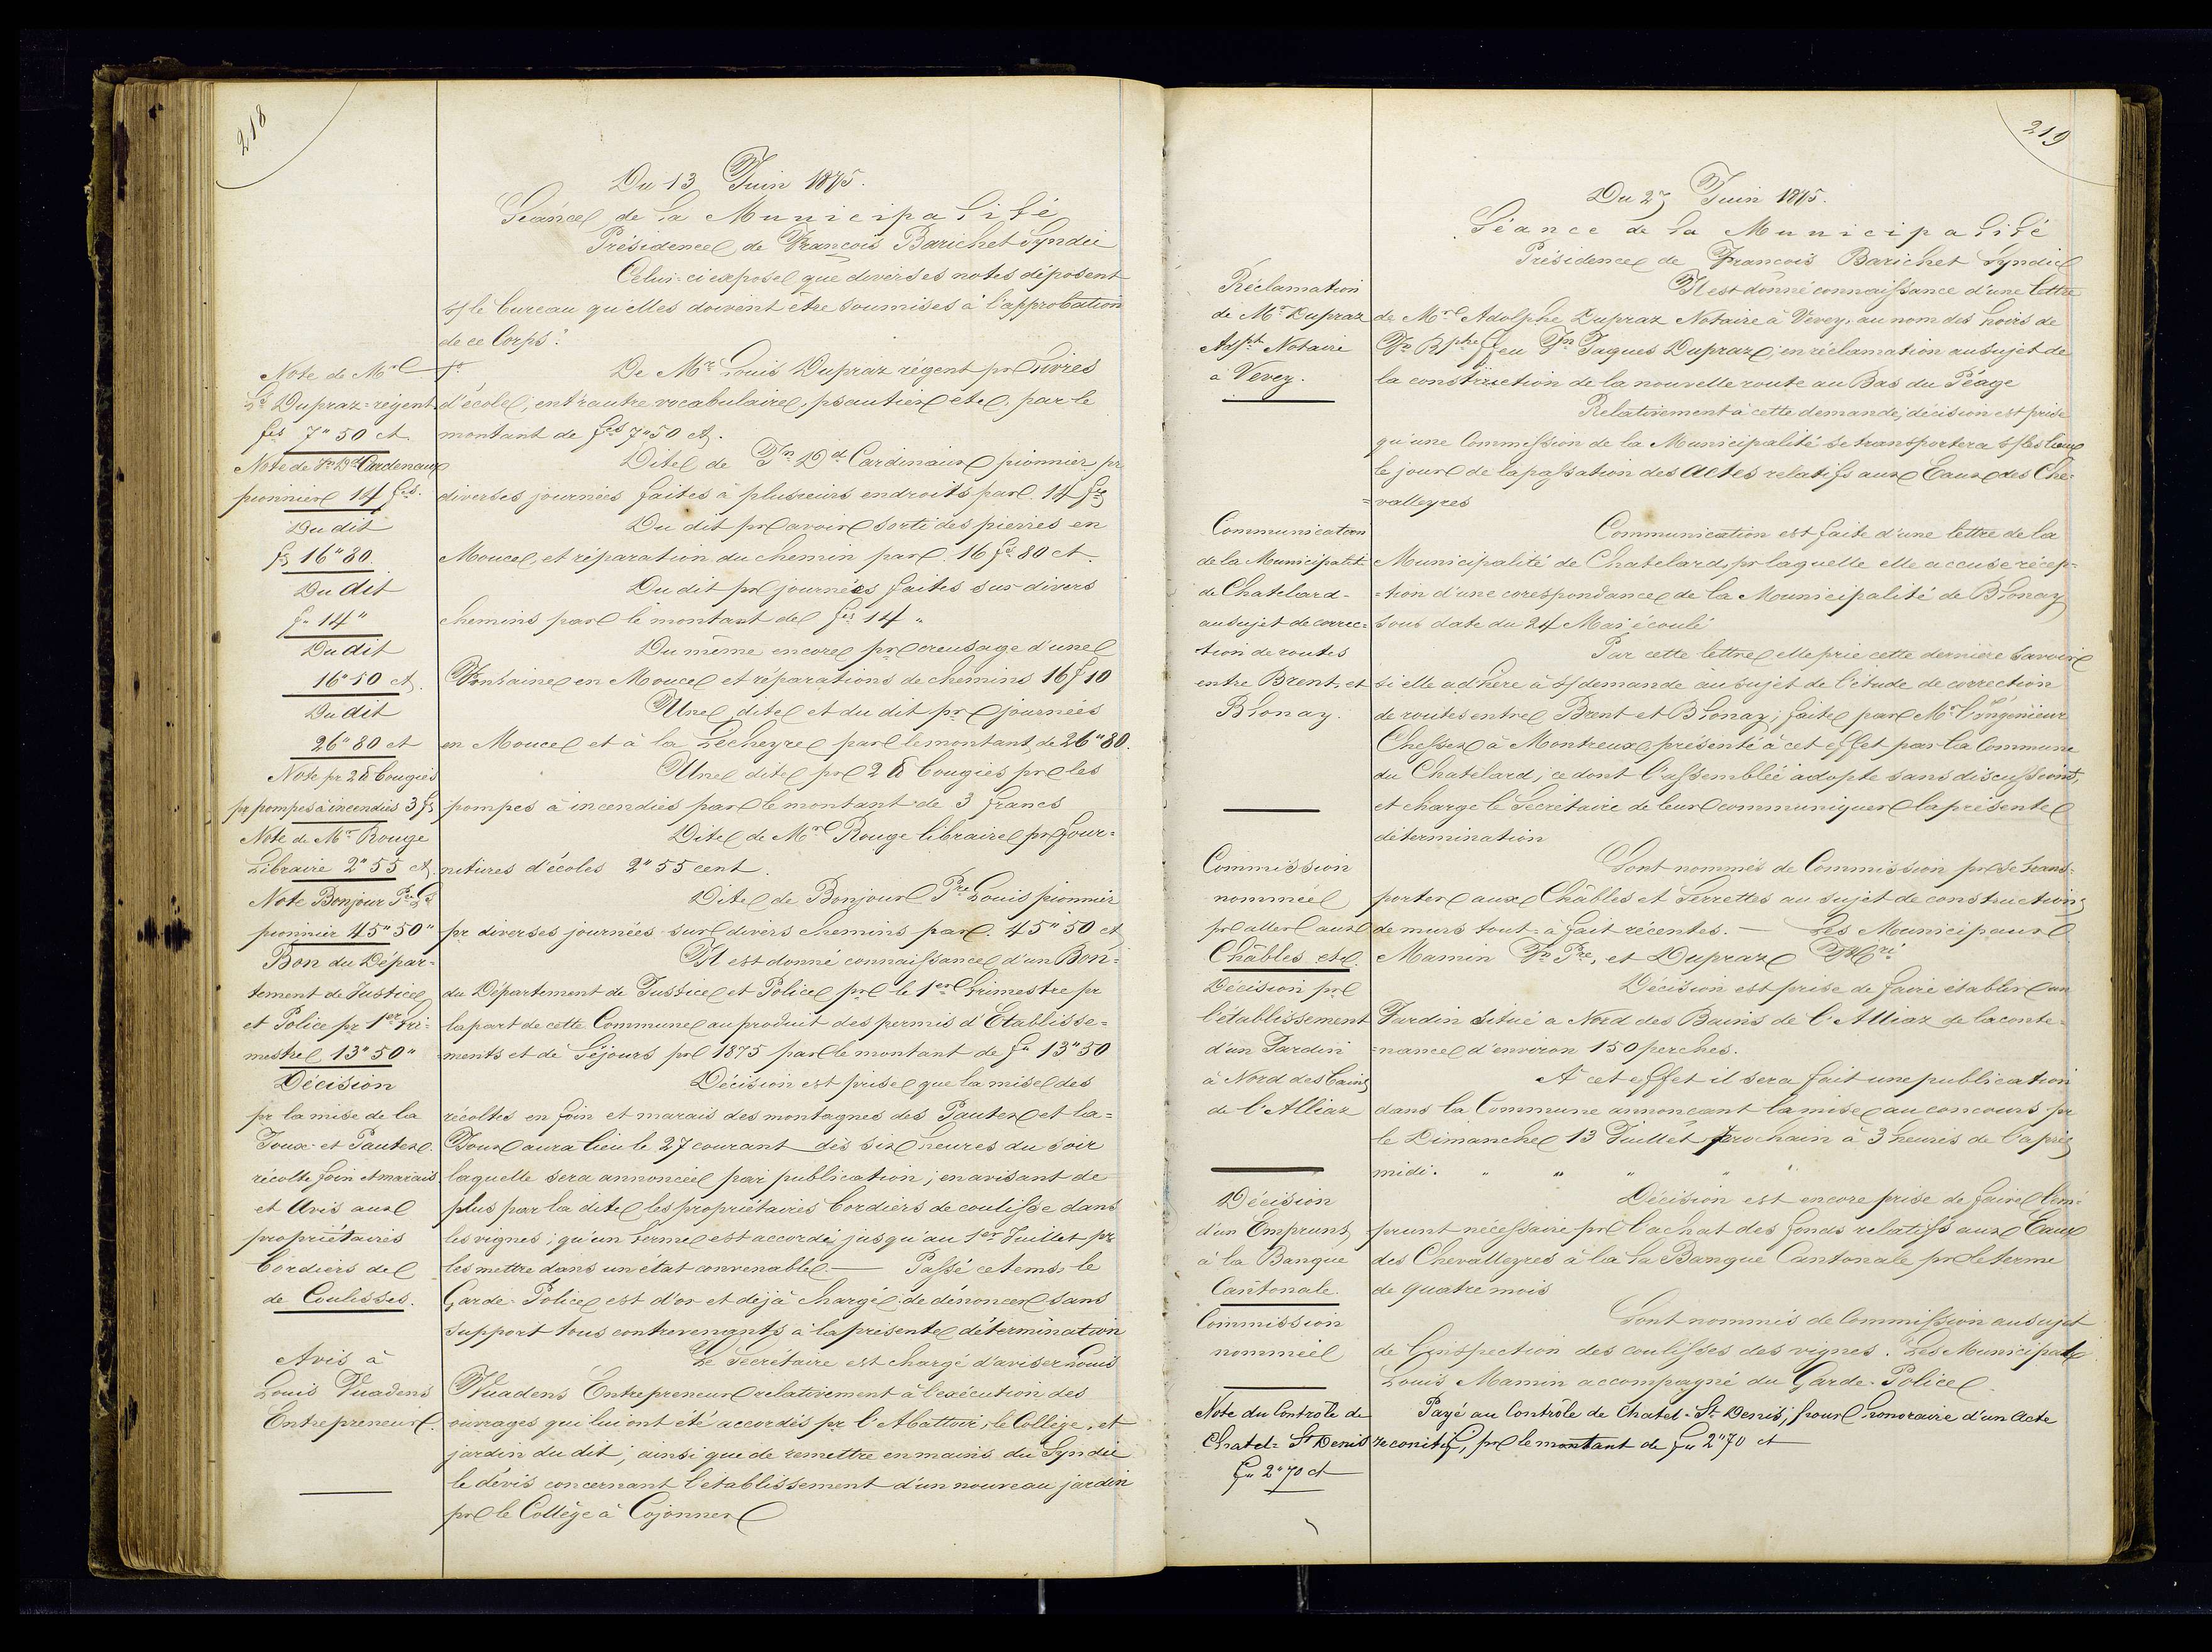 218
Du 13 Juin 1875.
Séance de la Municipalité
Présidence de François Barichet Syndic
Celui=ci expose que diverses notes déposent
s/ le bureau qu'elles doivent être soumises à l'approbation
de ce Corps:
Note de Mr
Ls Dupraz=régent
frs 7"50 ct.
1o De Mr Louis Dupraz régent pr Livres
d'école, entr'autre vocabulaire, psautier etc. par le
montant de frs 7"50 ct.
Note de Jn Dd Cardinaux
pionnier 14 frs.
Dite de Jn Dd Cardinaux pionnier pr
diverses journées faites à plusieurs endroits par. 14 frs
Du dit
frs 16"80.
Du dit pr avoir sorti des pierres en
Mouce et réparation du chemin par. 16 frs 80 ct
Du dit
fr 14"
Du dit pr journées faites sur divers
chemins par le montant de frs 14 "
Du dit
16"50 ct.
Du même encore pr creusage d'une
Fontaine en Mouce et réparations de chemins 16 f 10
Du dit
26"80 ct
Une dite et du dit pr journées
en Mouce et à la Lecheyre par le montant de 26"80.
Note pr 2 ℔ bougies
pr pompes à incendies 3 frs
Une dite pr 2 ℔ bougies pr les
pompes à incendies par le montant de 3 francs
Note de Mr Rouge
Libraire 2"55 ct.
Dite de Mr Rouge libraire pr four=
nitures d'écoles 2"55 cent.
Note Bonjour Pre Ls
pionnier 45"50"
Dite de Bonjour Pre Louis pionnier
pr diverses journées sur divers chemins par. 45"50 ct
Bon du Dépar=
tement de Justice
et Police pr 1er tri=
mestre 13"50"
Il est donné connaissance d'un Bon=
du Département de Justice et Police pr le 1er trimestre pr
la part de cette Commune au produit des permis d'Etablisse=
ments et de Séjours pr 1875 par le montant de fr 13"50
Décision
pr la mise de la
Joux= et Pautex.
récolte foin et marais
et Avis aux
propriétaires
bordiers de
de Coulisses.
Décision est prise que la mise des
récoltes en foin et marais des montagnes des Pautex et la=
Joux aura lieu le 27 courant dès six heures du soir
laquelle sera annoncée par publication; en avisant de
plus par la dite les propriétaires bordiers de coulisse dans
les vignes; qu'un terme est accordé jusqu'au 1er Juillet pr
les mettre dans un état convenable.— Passé ce tems, le
Garde=Police est d'or et déjà chargé de dénoncer sans
support tous contrevenants à la présente détermination
Avis à
Louis Vuadens
Entrepreneur.
Le Secrétaire est chargé d'aviser Louis
Vuadens Entrepreneur relativement à l'exécution des
ouvrages qui lui ont été accordés pr l'Abattoir, le Collège, et
jardin du dit; ainsi que de remettre en mains du Syndic
le devis concernant l'établissement d'un nouveau jardin
pr le Collège à Cojonnex
219
Du 27 Juin 1875.
Séance de la Municipalité
Présidence de François Barichet Syndic
Réclamation
de Mr Dupraz
Adphe Notaire
à Vevey.
Il est donné connaissance d'une lettre
de Mr Adolphe Dupraz Notaire à Vevey, au nom des hoirs de
feu Jn Jaques Dupraz, en réclamation au sujet de
la construction de la nouvelle route au Bas du Péage
Relativement à cette demande, décision est prise
qu'une Commission de la Municipalité se transportera s/ les lieux
le jour de la passation des Actes relatifs aux Eaux des Che=
=valleyres
Communication
de la Municipalité
de Chatelard-
au sujet de correc=
tion de routes
entre Brent, et
Blonay.
Communication est faite d'une lettre de la
Municipalité de Chatelard, pr laquelle elle accuse récep=
=tion d'une corespondance de la Municipalité de Blonay
sous date du 24 Mai écoulé
Par cette lettre elle prie cette dernière savoir
si elle adhère à s/ demande au sujet de l'étude de correction
de routes entre Brent et Blonay; faite par Mr l'ingénieur
Chessex à Montreux présenté à cet effet par la Commune
du Chatelard; ce dont l'assemblée adopte sans discussions,
et charge le Secrétaire de leur communiquer la présente
détermination
Commission
nommée
pr aller aux
Châbles etc.
Sont nommés de Commission pr se trans=
porter aux Châbles et Serrettes au sujet de constructions
de murs tout=à fait récentes.— Les Municipaux
Mamin Jn Pre, et Dupraz
Décision pr
l'établissement
d'un Jardin
à Nord des bains
de l'Alliaz
Décision est prise de faire établir un
Jardin situé a Nord des Bains de l'Alliaz de la conte=
=nance d'environ 150 perches.
A cet effet il sera fait une publication
dans la Commune annonçant la mise au concours pr
le Dimanche 13 Juillet prochain à 3 heures de l'après
midi. " " " " "
Décision
d'un Emprunt
à la Banque
Cantonale.
Décision est encore prise de faire l'em=
prunt nécessaire pr l'achat des fonds relatifs aux Eaux
des Chevalleyres à la la Banque Cantonale pr le terme
de quatre mois
Commission
nommée
Sont nommés de Commission au sujet
de l'inspection des coulisses des vignes. Les Municipal
Louis Mamin accompagné du Garde=Police
Note du Contrôle de
Chatel=St Denis
fr 2"70 ct
Payé au Contrôle de Chatel=St Denis; pour honoraire d'un Acte
reconitif, pr le montant de fr 2"70 ct